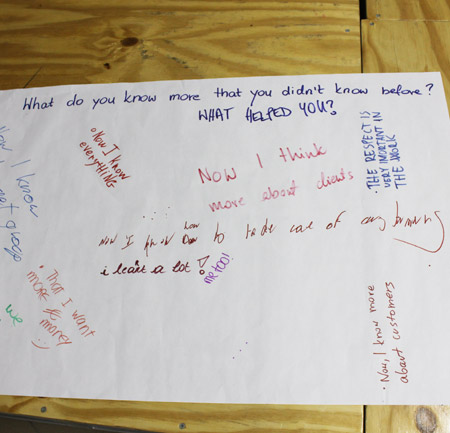 What do you know more that you didn't know before?
WHAT HELPED YOU?
• Now I know
everything
Now I think
more about clients
• THE RESPECT IS
VERY IMPORTANT IN
THE WORK
Now I know
Now I know how to take care of my
i leart a lot!
me too!
• That I want
more $ money
:)
we
• Now, I know more
about customers